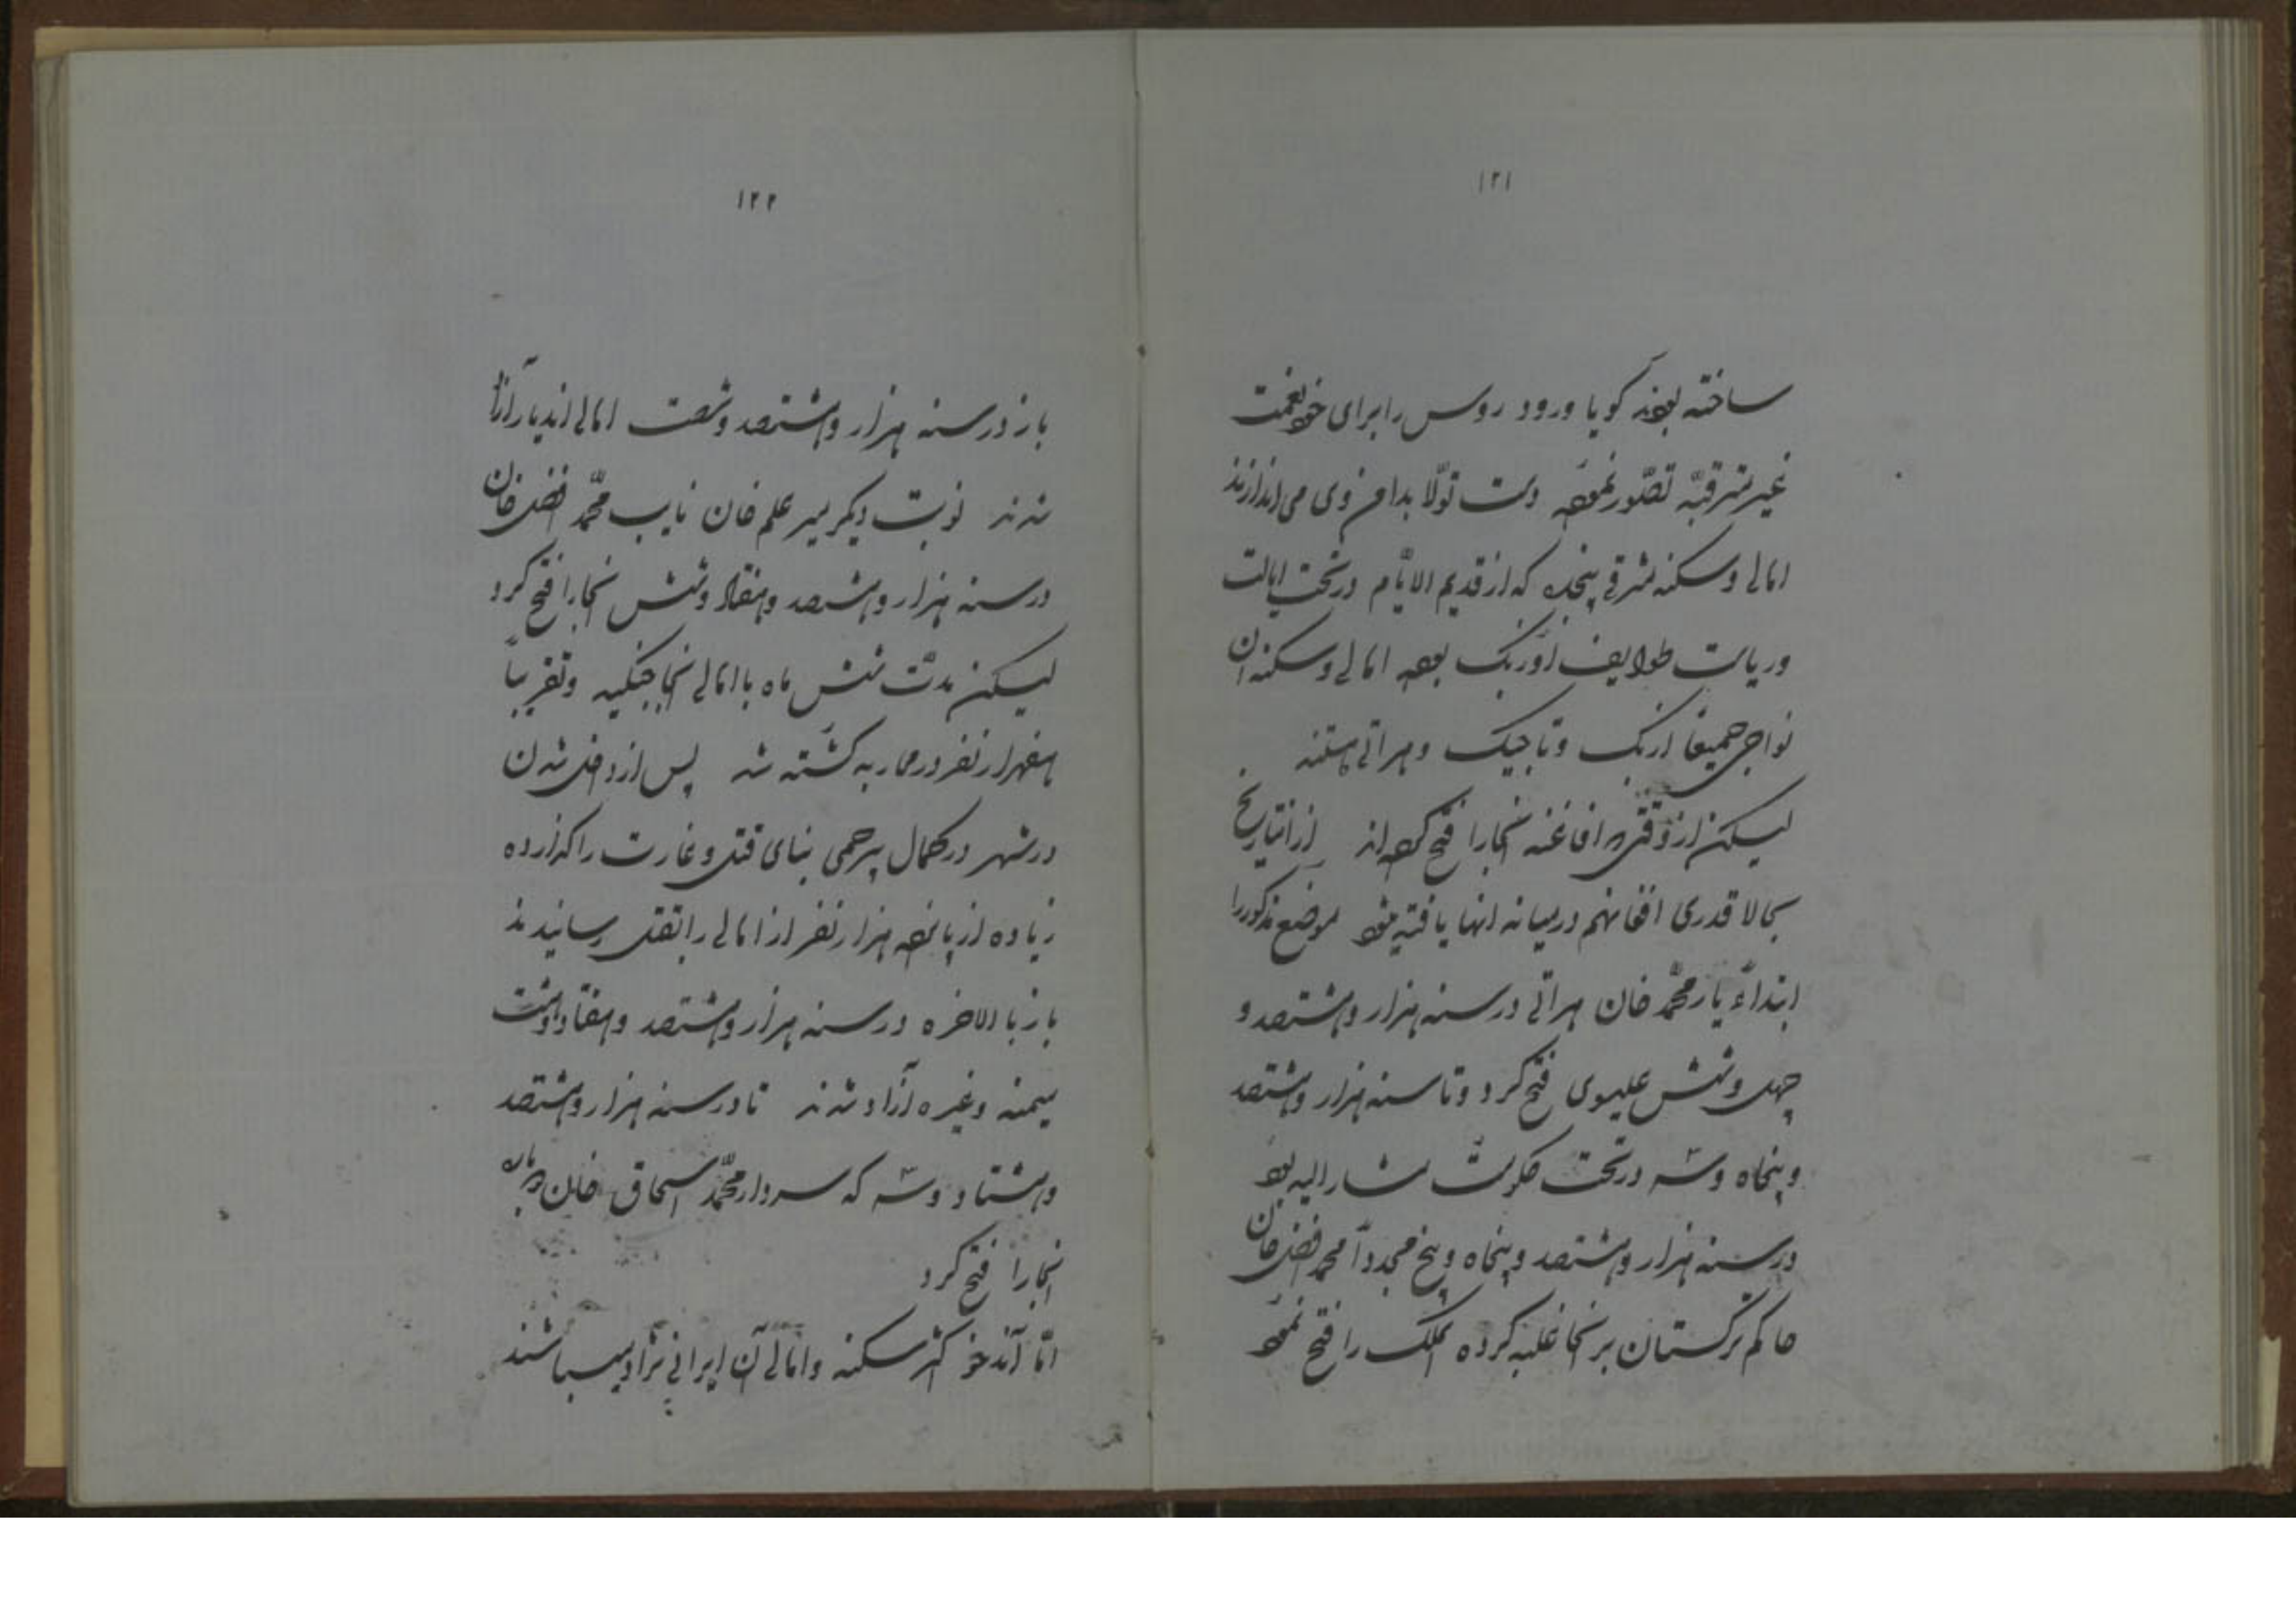 ۱۲۱
ساخته بودند گویا ورود روس را برای خود نعمت
غیر مترقبه تصّور نموده دست تولّا بدامن وی می اندازند
اهالی وسکنه شرقی پنجده که از قدیم الایّام در تحت ایالت
وریاست طوایف اوزبک بوده اهالی وسکنه ان
نواحی جمیعاً ازبک وتاجیک وهراتی هستند
لیکن از وقتیکه افاغنه انجا را فتح کرده اند از انتاریخ
ببالا قدری افغانهم درمیانه انها یافته میشود موضع مذکور را
ابتداءً یار محمّد خان هراتی در سنه هزار وهشتصد و
چهل وشش عیسوی فتح کرد وتا سنه هزار وهشتصد
وپنجاه وسه در تحت حکومت مشار الیه بود
در سنه هزار وهشتصد وپنجاه وپنج مجدداً محمد افضل خان
حاکم ترکستان بر انجا غلبه کرده انملک را فتح نمود
۱۲۲
باز در سنه هزار وهشتصد وشصت اهالی اندیار آزاد
شدند نوبت دیگر میر علم خان نایب محمّد افضل خان
در سنه هزار وهشتصد وهفتاد وشش انجا را فتح کرد
لیکن مدّت شش ماه با اهالی انجا جنگیده وتقریباً
هفهزار نفر در محاربه کشته شد پس از داخل شدن
در شهر در کمال بیرحمی بنای قتل وغارت را گذارده
زیاده از پانصد هزار نفر از اهالی را بقتل رسانیدند
باز بالاخره در سنه هزار وهشتصد وهفتاد وهشت
میمنه وغیره آزاد شدند تا در سنه هزار وهشتصد
وهشتاد وسه که سردار محمّد اسحاق خان
انجا را فتح کرد
امّا آندخو اکثر سکنه واهالی آن ایرانی نژاد میباشند